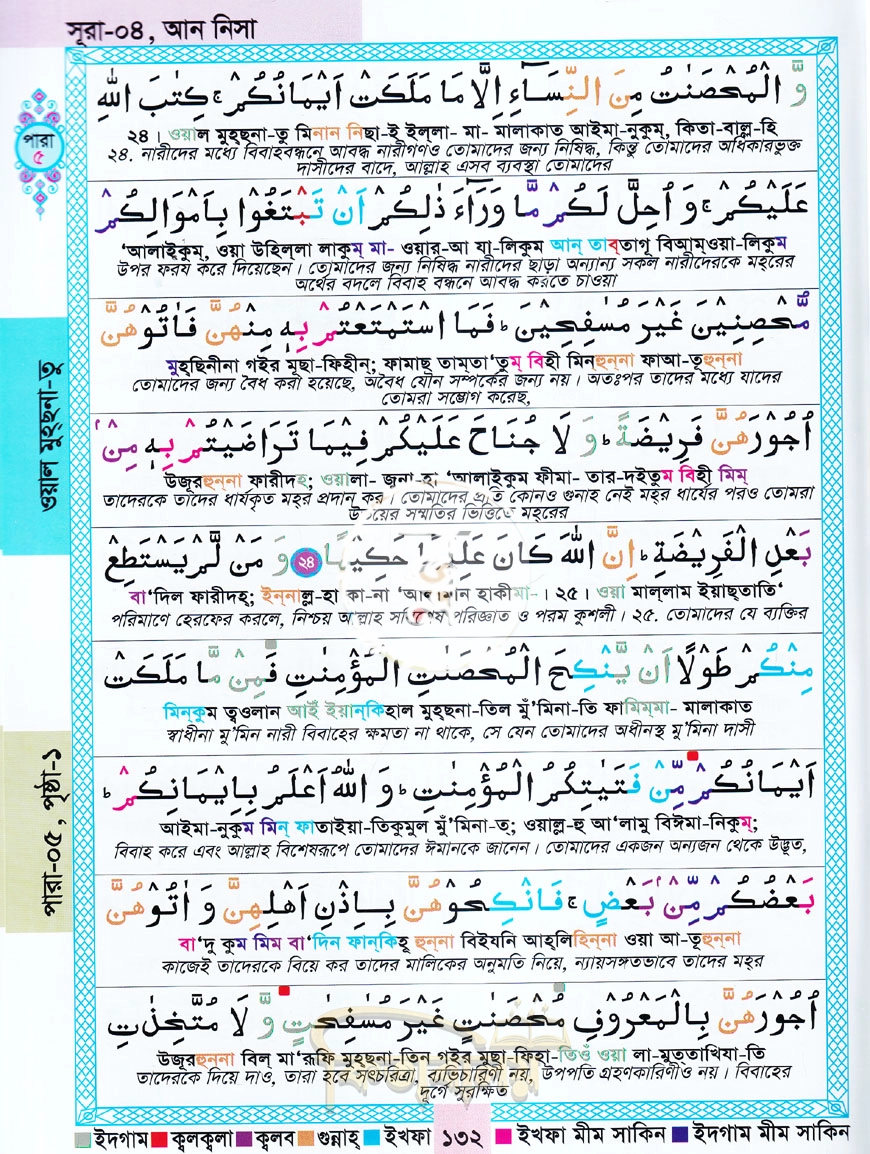 সূরা-০৪, আন নিসা
পারা
৫
وَّ الْمُحْصَنٰتُ مِنَ النِّسَآءِ اِلَّا مَا مَلَكَتْ اَيْمَانُكُمْ ۚ كِتٰبَ اللّٰهِ
২৪। ওয়াল মুহ্ছনা-তু মিনান নিছা-ই ইল্লা- মা- মালাকাত আইমা-নুকুম, কিতা-বাল্ল-হি
২৪. নারীদের মধ্যে বিবাহবন্ধনে আবদ্ধ নারীগণও তোমাদের জন্য নিষিদ্ধ, কিন্তু তোমাদের অধিকারভুক্ত
দাসীদের বাদে, আল্লাহ এসব ব্যবস্থা তোমাদের
عَلَيْكُمْ ۚ وَ اُحِلَّ لَكُمْ مَّا وَرَآءَ ذٰلِكُمْ اَنْ تَبْتَغُوْا بِاَمْوَالِكُمْ
'আলাইকুম, ওয়া উহিল্লা লাকুম মা- ওয়ার-আ যা-লিকুম আন্ তাব্তাগূ বিআম্ওয়া-লিকুম
উপর ফরয করে দিয়েছেন। তোমাদের জন্য নিষিদ্ধ নারীদের ছাড়া অন্যান্য সকল নারীদেরকে মহরের
অর্থের বদলে বিবাহ বন্ধনে আবদ্ধ করতে চাওয়া
مُّحْصِنِيْنَ غَيْرَ مُسٰفِحِيْنَ ؕ فَمَا اسْتَمْتَعْتُمْ بِهٖ مِنْهُنَّ فَاٰتُوْهُنَّ
মুহ্ছিনীনা গইর মুছা-ফিহীন; ফামাছ তাম্তা'তুম্ বিহী মিনহুন্না ফাআ-তূহুন্না
তোমাদের জন্য বৈধ করা হয়েছে, অবৈধ যৌন সম্পর্কের জন্য নয়। অতঃপর তাদের মধ্যে যাদের
তোমরা সম্ভোগ করেছ,
اُجُوْرَهُنَّ فَرِيْضَةً ؕ وَ لَا جُنَاحَ عَلَيْكُمْ فِيْمَا تَرَاضَيْتُمْ بِهٖ مِنْ ۢ
উজূরহুন্না ফারীদহ; ওয়ালা- জুনা-হা 'আলাইকুম ফীমা- তার-দইতুম বিহী মিম্
তাদেরকে তাদের ধার্যকৃত মহর প্রদান কর। তোমাদের প্রতি কোনও গুনাহ নেই মহর ধার্যের পরও তোমরা
উভয়ের সম্মতির ভিত্তিতে মহরের
بَعْدِ الْفَرِيْضَةِ ؕ اِنَّ اللّٰهَ كَانَ عَلِيْمًا حَكِيْمًا ২৪ وَ مَنْ لَّمْ يَسْتَطِعْ
বা'দিল ফারীদহ; ইন্নাল্ল-হা কা-না 'আলীমান হাকীমা-। ২৫। ওয়া মাল্লাম ইয়াছ্তাতি'
পরিমাণে হেরফের করলে, নিশ্চয় আল্লাহ সবিশেষ পরিজ্ঞাত ও পরম কুশলী। ২৫. তোমাদের যে ব্যক্তির
مِنْكُمْ طَوْلًا اَنْ يَّنْكِحَ الْمُحْصَنٰتِ الْمُؤْمِنٰتِ فَمِنْ مَّا مَلَكَتْ
মিন্কুম ত্বওলান আইঁ ইয়ান্কিহাল মুহ্ছনা-তিল মু'মিনা-তি ফামিম্মা- মালাকাত
স্বাধীনা মু'মিন নারী বিবাহের ক্ষমতা না থাকে, সে যেন তোমাদের অধীনস্থ মু'মিনা দাসী
اَيْمَانُكُمْ مِّنْ فَتَيٰتِكُمُ الْمُؤْمِنٰتِ ؕ وَ اللّٰهُ اَعْلَمُ بِاِيْمَانِكُمْ ؕ
আইমা-নুকুম মিন্ ফাতাইয়া-তিকুমুল মু'মিনা-ত; ওয়াল্ল-হু আ'লামু বিঈমা-নিকুম্;
বিবাহ করে এবং আল্লাহ বিশেষরূপে তোমাদের ঈমানকে জানেন। তোমাদের একজন অন্যজন থেকে উদ্ভূত,
بَعْضُكُمْ مِّنْ ۢ بَعْضٍ ۚ فَانْكِحُوْهُنَّ بِاِذْنِ اَهْلِهِنَّ وَ اٰتُوْهُنَّ
বা'দু কুম মিম বা'দিন ফান্কিহূ হুন্না বিইযনি আহ্লিহিন্না ওয়া আ-তূহুন্না
কাজেই তাদেরকে বিয়ে কর তাদের মালিকের অনুমতি নিয়ে, ন্যায়সঙ্গতভাবে তাদের মহর
اُجُوْرَهُنَّ بِالْمَعْرُوْفِ مُحْصَنٰتٍ غَيْرَ مُسٰفِحٰتٍ وَّ لَا مُتَّخِذٰتِ
উজূরহুন্না বিল্ মা'রূফি মুহ্ছনা-তিন গইর মুছা-ফিহা-তিওঁ ওয়া লা-মুত্তাখিযা-তি
তাদেরকে দিয়ে দাও, তারা হবে সৎচরিত্রা, ব্যভিচারিণী নয়, উপপতি গ্রহণকারিণীও নয়। বিবাহের
দূর্গে সুরক্ষিত
ওয়াল মুহ্ছনা-তু
পারা-০৫, পৃষ্ঠা-১
ইদগাম ক্বলক্বলা ক্বলব গুন্নাহ্ ইখফা ১৩২ ইখফা মীম সাকিন ইদগাম মীম সাকিন